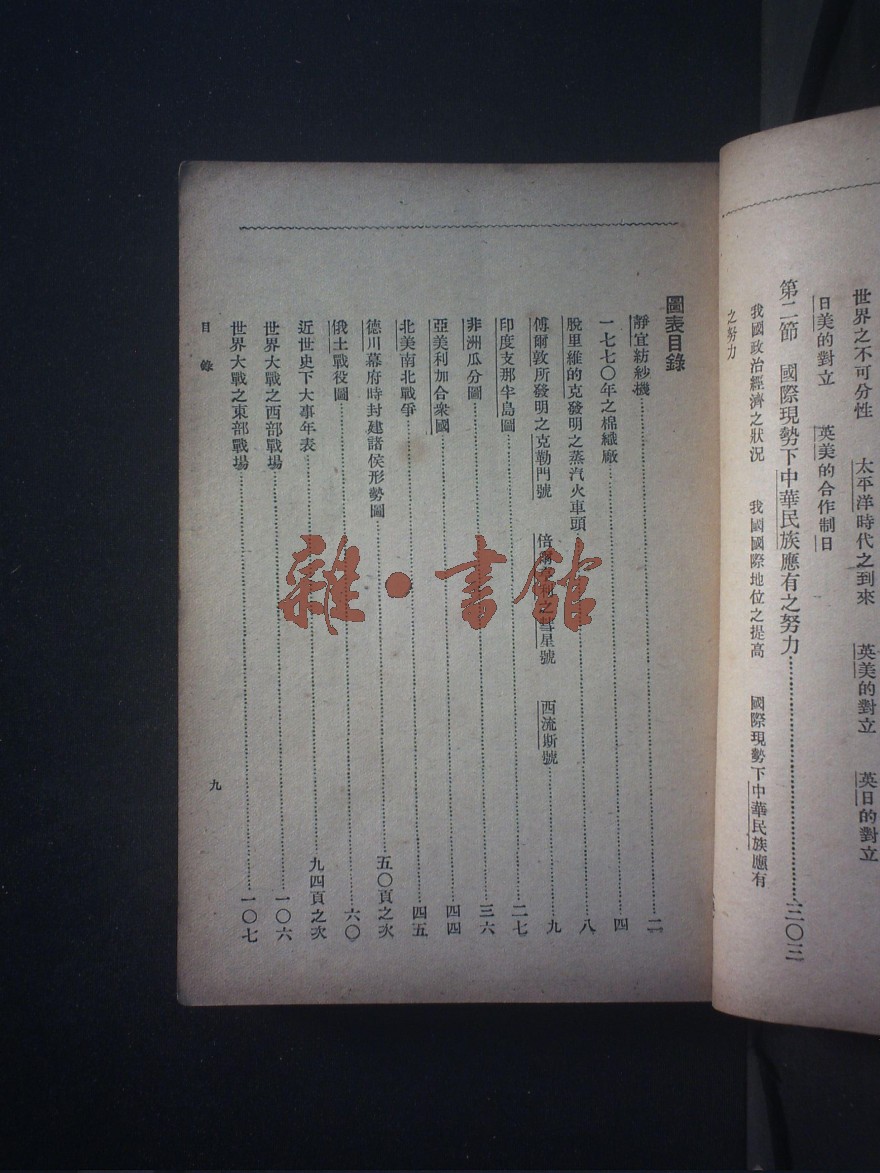 世界之不可分性　太平洋時代之到來　英美的對立　英日的對立
日美的對立　英美的合作制日
第二節　國際現勢下中華民族應有之努力……三〇三
我國政治經濟之狀況　我國國際地位之提高　國際現勢下中華民族應有
之努力
圖表目錄
靜宜紡紗機……二
一七七〇年之棉織廠……四
脫里維的克發明之蒸汽火車頭……八
傅爾敦所發明之克勒門號　倍爾　彗星號　西流斯號……九
印度支那半島圖……二七
非洲瓜分圖……三六
亞美利加合衆國……四四
北美南北戰爭……四五
德川幕府時封建諸侯形勢圖……五〇頁之次
俄土戰役圖……六〇
近世史下大事年表……九四頁之次
世界大戰之西部戰場……一〇六
世界大戰之東部戰場……一〇七
目錄
九
雜·書館